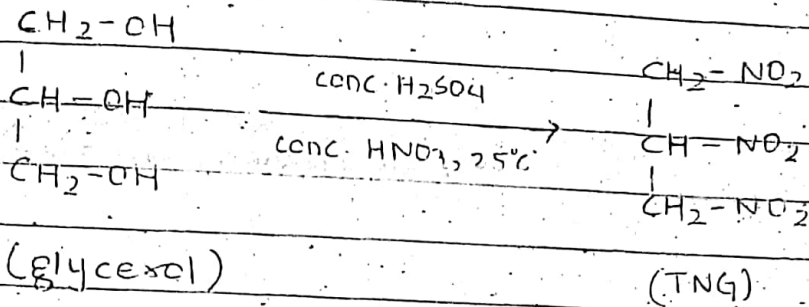 CH2-OH
|
CH-OH
|
CH2-OH
(glycerol)
conc. H2SO4
conc. HNO3, 25°C
CH2-NO2
|
CH-NO2
|
CH2-NO2
(TNG)